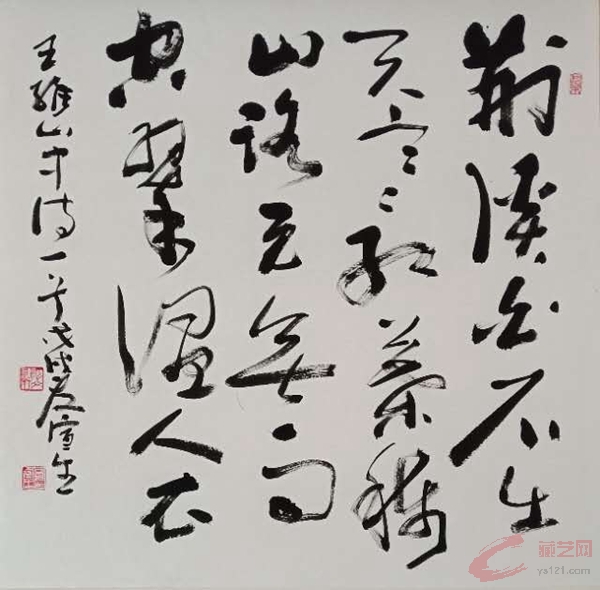 荆溪白石出
天寒红葉稀
山路元無雨
空翠湿人衣
王維山中诗一首戊戌宣生
藏艺网
ya121.com